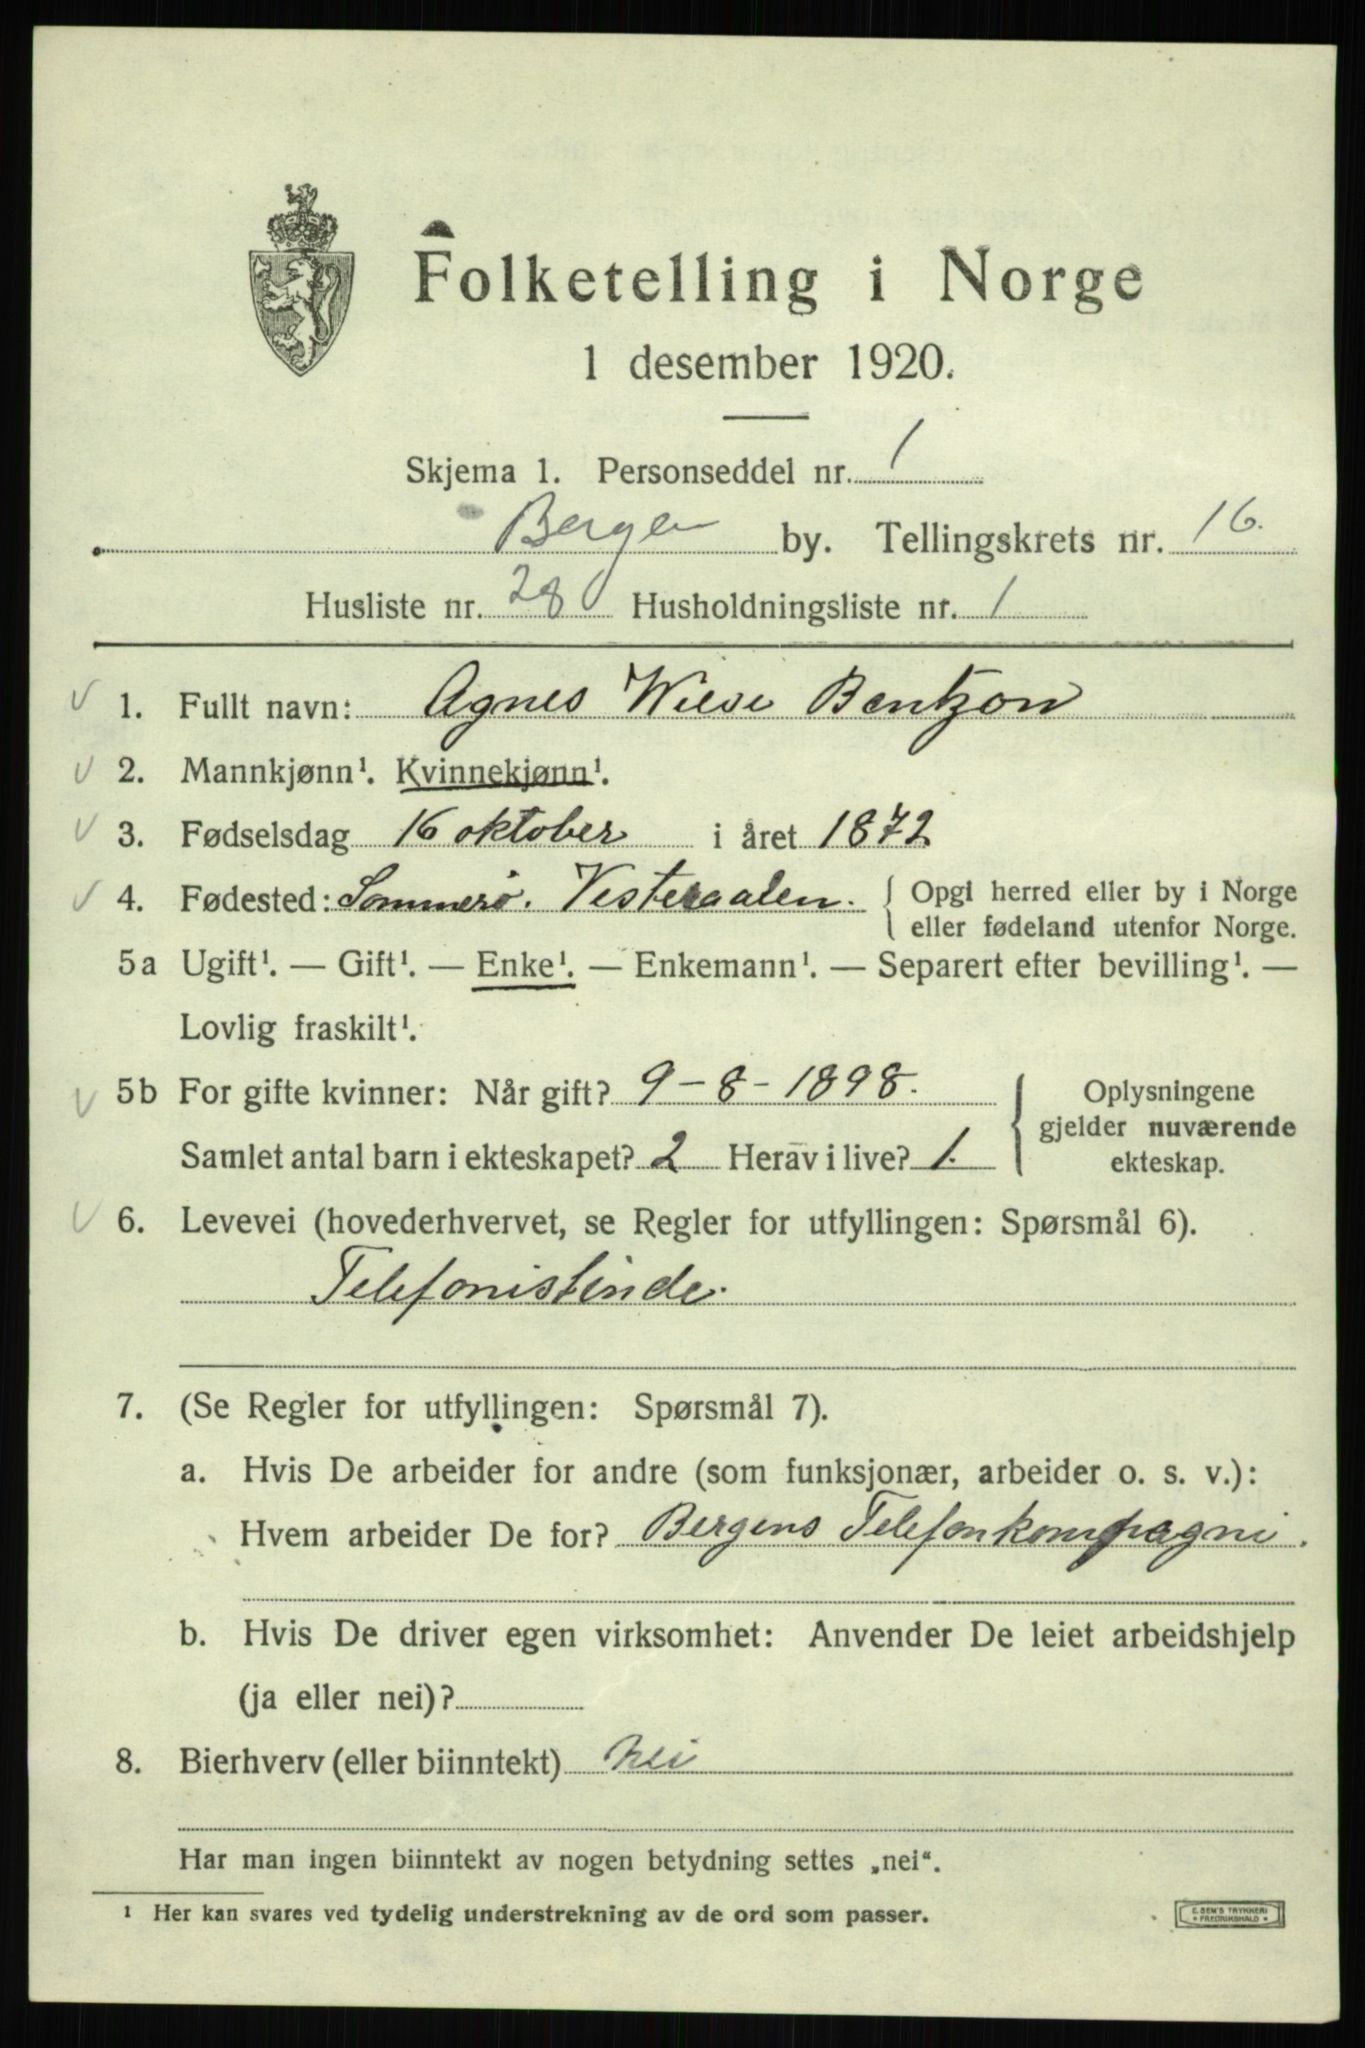 Folketelling i Norge
1 desember 1920.
Skjema 1. Personseddel nr. 1
Bergen by. Tellingskrets nr. 16.
Husliste nr. 28 Husholdningsliste nr. 1
1. Fullt navn: Agnes Wiese Bentzon
2. Mannkjønn¹. Kvinnekjønn¹.
3. Fødselsdag 16 oktober i året 1872
4. Fødested: Sommerø. Vesteraalen. { Opgi herred eller by i Norge
eller fødeland utenfor Norge.
5a Ugift¹. — Gift¹. — Enke¹. — Enkemann¹. — Separert efter bevilling¹. —
Lovlig fraskilt¹.
5b For gifte kvinner: Når gift? 9-8-1898. { Oplysningene
gjelder nuværende
ekteskap.
Samlet antal barn i ekteskapet? 2 Herav i live? 1.
6. Levevei (hovederhvervet, se Regler for utfyllingen: Spørsmål 6).
Telefonistinde.
7. (Se Regler for utfyllingen: Spørsmål 7).
a. Hvis De arbeider for andre (som funksjonær, arbeider o. s. v.):
Hvem arbeider De for? Bergens Telefonkompagni.
b. Hvis De driver egen virksomhet: Anvender De leiet arbeidshjelp
(ja eller nei)?
8. Bierhverv (eller biinntekt) nei
Har man ingen biinntekt av nogen betydning settes „nei“.
¹ Her kan svares ved tydelig understrekning av de ord som passer.
E. SEM'S TRYKKERI
FREDRIKSHALD